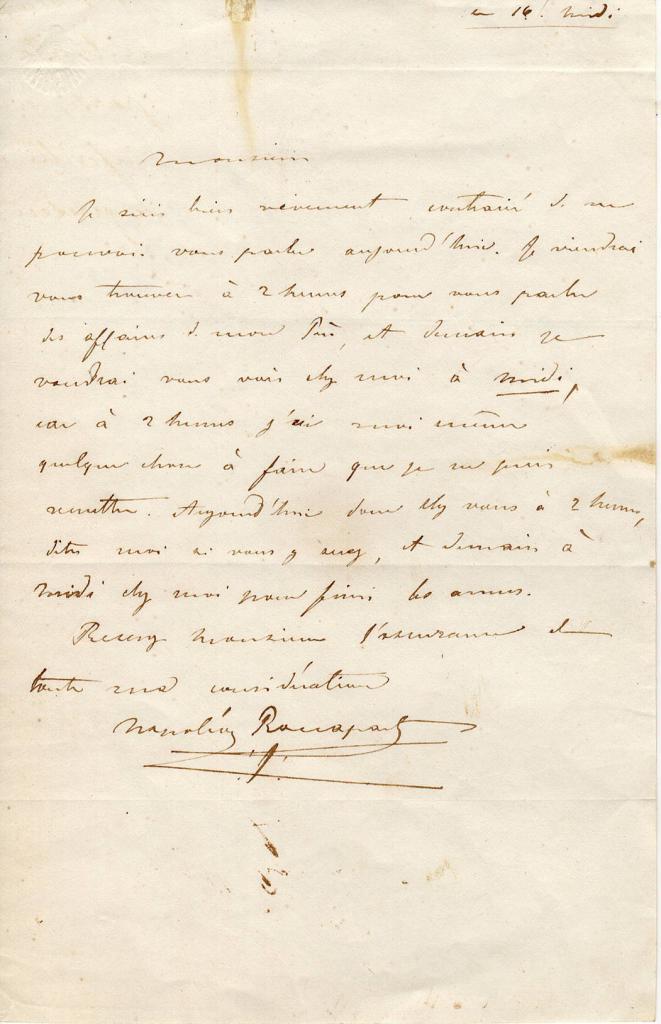 ce 16. midi
Monsieur
Je suis bien vivement contrarié de ne
pouvoir vous parler aujourd'hui. Je viendrai
vous trouver à 2 heures pour vous parler
des affaires de mon Père, et demain je
voudrai vous voir chez moi à midi,
car à 2 heures j'ai moi même
quelque chose à faire que je ne puis
remettre. Aujourd'hui donc chez vous à 2 heures,
dites moi si vous y serez, et demain à
midi chez moi pour finir les armes.
Recevez Monsieur l'assurance de
toute ma considération
Napoléon Bonaparte